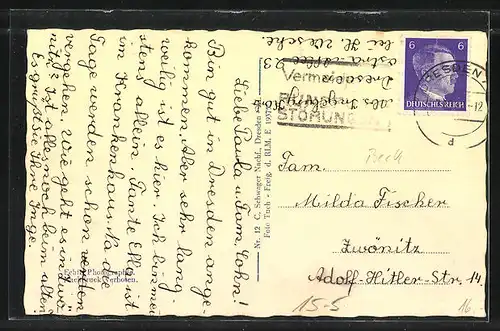 Liebe Paula u. Fam. Lohn!
Bin gut in Dresden ange-
kommen. Aber sehr lang-
weilig ist es hier. Ich bin mei
stens allein. Tante Ella ist
im Krankenhaus. Na die
Tage werden schon
vergehen. Wie geht es in Zwö
nitz? Ist alles noch beim alten?
Es grüßt Sie Ihre Inge.
Echte Photographie
Nachdruck verboten.
Nr. 12 C. Schwager Nachf., Dresden
Foto Tuch - Freig. d. RLM. E
Dresden
bei H.
Vermeidet
FUNK
STÖRUNGEN
6 6
DEUTSCHES REICH
DRESDEN
12
d
Fam.
Milda Fischer
Zwönitz
Adolf-Hitler-Str. 14.
15-5
16.